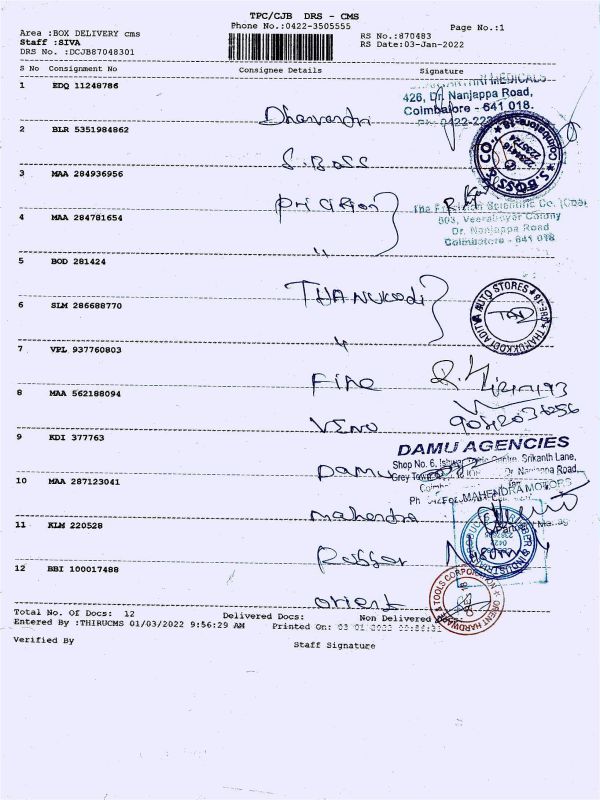 TPC/CJB DRS - CMS
Phone No.:0422-3505555
Page No.:1
Area :BOX DELIVERY cms
Staff :SIVA
DRS No. :DCJB87048301
RS No.:870483
RS Date:03-Jan-2022
S No Consignment No Consignee Details Signature
1 EDQ 11248786
MEDICALS
426, Dr. Nanjappa Road,
Coimbatore - 641 018.
Dhanvandri
2 BLR 5351984862
S. BOSS & CO.
Coimbatore-18
S. Boss
3 MAA 284936956
4 MAA 284781654
The Precision Scientific Co. (Cbe)
503, Veerabuyar Colony
Dr. Nanjappa Road
Coimbatore - 641 018
"
5 BOD 281424
THANUKODI
6 SLM 286688770
THANUKKODI ADITYA AUTO STORES
CBE-18
"
7 VPL 937760803
8 MAA 562188094
VENU
9 KDI 377763
DAMU AGENCIES
Shop No. 6, Centre, Srikanth Lane,
Dr. Nanjappa Road,
Damu
10 MAA 287123041
For MAHENDRA MOTORS
Mahendra
11 KLM 220528
RUBBER & INDUSTRIAL
Rubber
12 BBI 100017488
ORIENT HARDWARE & TOOLS CORPORATION
orient
Total No. Of Docs: 12 Delivered Docs: Non Delivered
Entered By :THIRUCMS 01/03/2022 9:56:29 AM Printed On:
Verified By Staff Signature